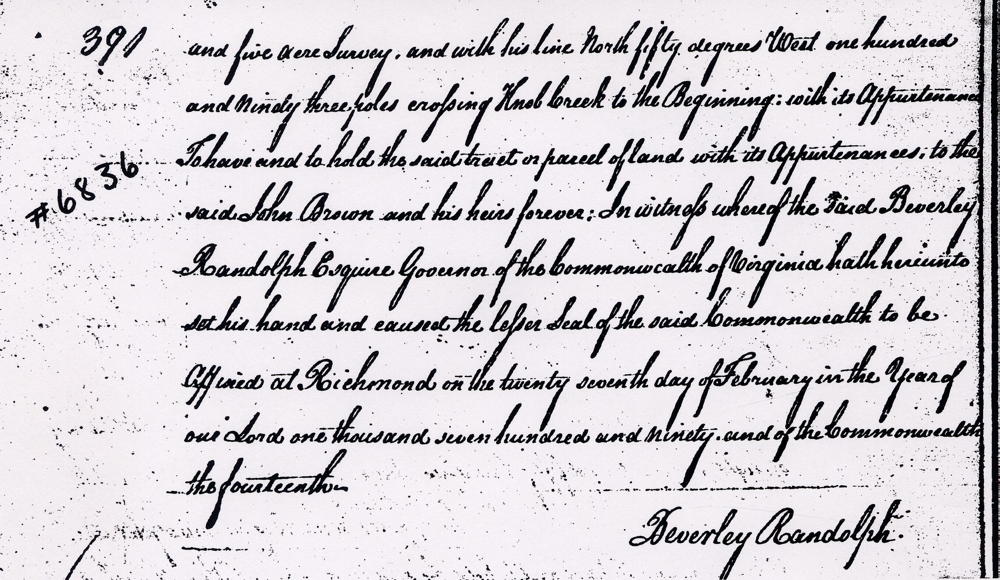 391
and five acre Survey. and with his line North fifty degrees West one hundred
and Ninety three poles crossing Knob Creek to the Beginning: with its Appurtenances
#6836
To have and to hold the said tract or parcel of land with its Appurtenances; to the
said John Brown and his heirs forever: In witness whereof the said Beverley
Randolph Esquire Governor of the Commonwealth of Virginia hath hereunto
set his hand and caused the lesser Seal of the said Commonwealth to be
Affixed at Richmond on the twenty seventh day of February in the Year of
our Lord one thousand seven hundred and Ninety. and of the Commonwealth
the fourteenth
Beverley Randolph.